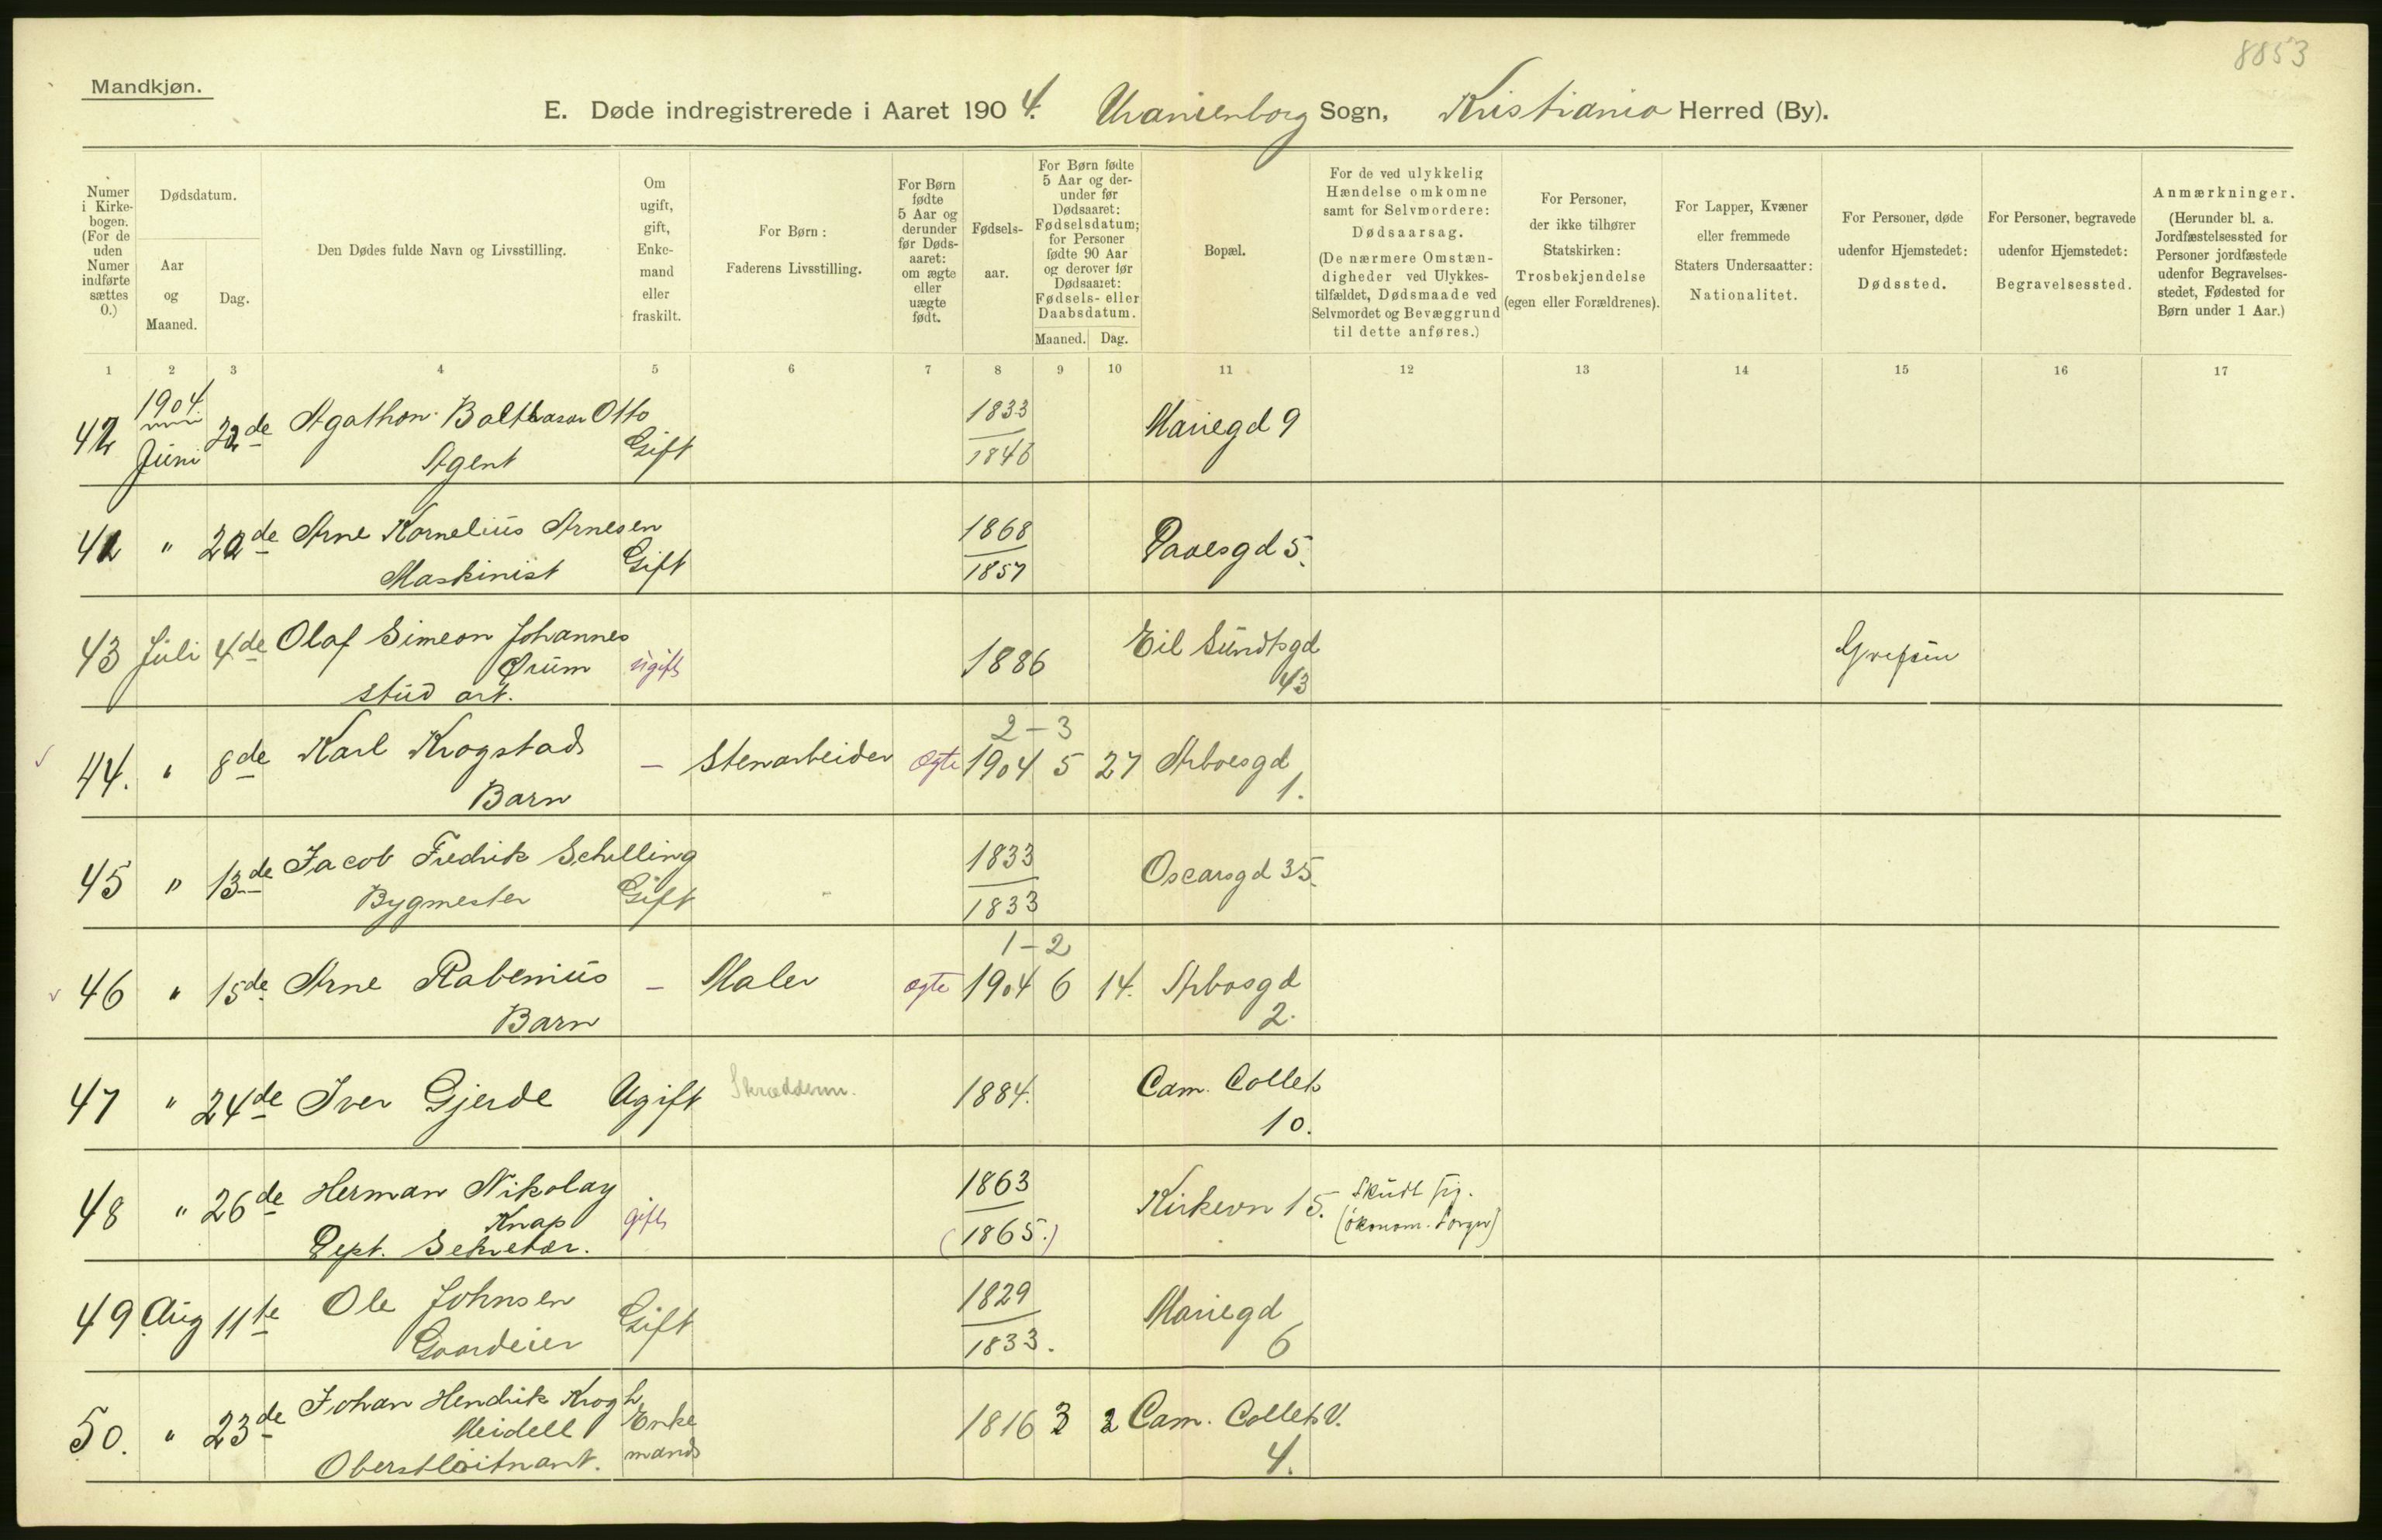 8853
Mandkjøn.
E. Døde indregistrerede i Aaret 1904. Uranienborg Sogn, Kristiania Herred (By).
Numer i Kirkebogen. (For de uden Numer indførte sættes 0.)
Dødsdatum.
Aar og Maaned.
Dag.
Den Dødes fulde Navn og Livsstilling.
Om ugift, gift, Enkemand eller fraskilt.
For Børn: Faderens Livsstilling.
For Børn fødte 5 Aar og derunder før Dødsaaret: om ægte eller uægte født.
Fødselsaar.
For Børn fødte 5 Aar og derunder før Dødsaaret: Fødselsdatum; for Personer fødte 90 Aar og derover før Dødsaaret: Fødsels- eller Daabsdatum.
Maaned. Dag.
Bopæl.
For de ved ulykkelig Hændelse omkomne samt for Selvmordere: Dødsaarsag. (De nærmere Omstændigheder ved Ulykkestilfældet, Dødsmaade ved Selvmordet og Bevæggrund til dette anføres.)
For Personer, der ikke tilhører Statskirken: Trosbekjendelse (egen eller Forældrenes).
For Lapper, Kvæner eller fremmede Staters Undersaatter: Nationalitet.
For Personer, døde udenfor Hjemstedet: Dødssted.
For Personer, begravede udenfor Hjemstedet: Begravelsessted.
Anmærkninger. (Herunder bl. a. Jordfæstelsessted for Personer jordfæstede udenfor Begravelsesstedet, Fødested for Børn under 1 Aar.)
1 2 3 4 5 6 7 8 9 10 11 12 13 14 15 16 17
1904.
Juni 22de Agathon Balthasar Otto Gift 1833 Mariegd 9
Agent 1846
" Arne Kornelius Arnesen Gift 1868
Maskinist 1857
43 Juli 4de Olaf Simeon Johannes ugift 1886 Eil Sundtsgd Grefsen
Ørum 43
stud art.
2-3
44. " 8de Karl Krogstad — Stenarbeider ægte 1904 5 27 Arboesgd
Barn 1.
45 " 13de Jacob Fredrik Schilling Gift 1833 Oscarsgd 35.
Bygmester 1833
1-2
46 " 15de Arne Rabenius — Maler ægte 1904 6 14. Arbosgd
Barn 2.
47 " 24de Iver Gjerde Ugift 1884. Cam. Collets
10.
48 " 26de Herman Nikolay gift 1863 Kirkevn 15. Skudt sig.
Knap (økonom. Sorger)
Dept. Sekretær. (1865.)
49 Aug 11te Ole Johnsen Gift 1829 Mariegd
Gaardeier 1833. 6
50. " 23de Johan Hendrik Krogh Enke 1816 3 2 Cam. Collets V.
Meidell mand 4.
Oberstløitnant.